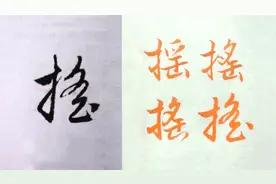 摇
摇 摇
摇 摇